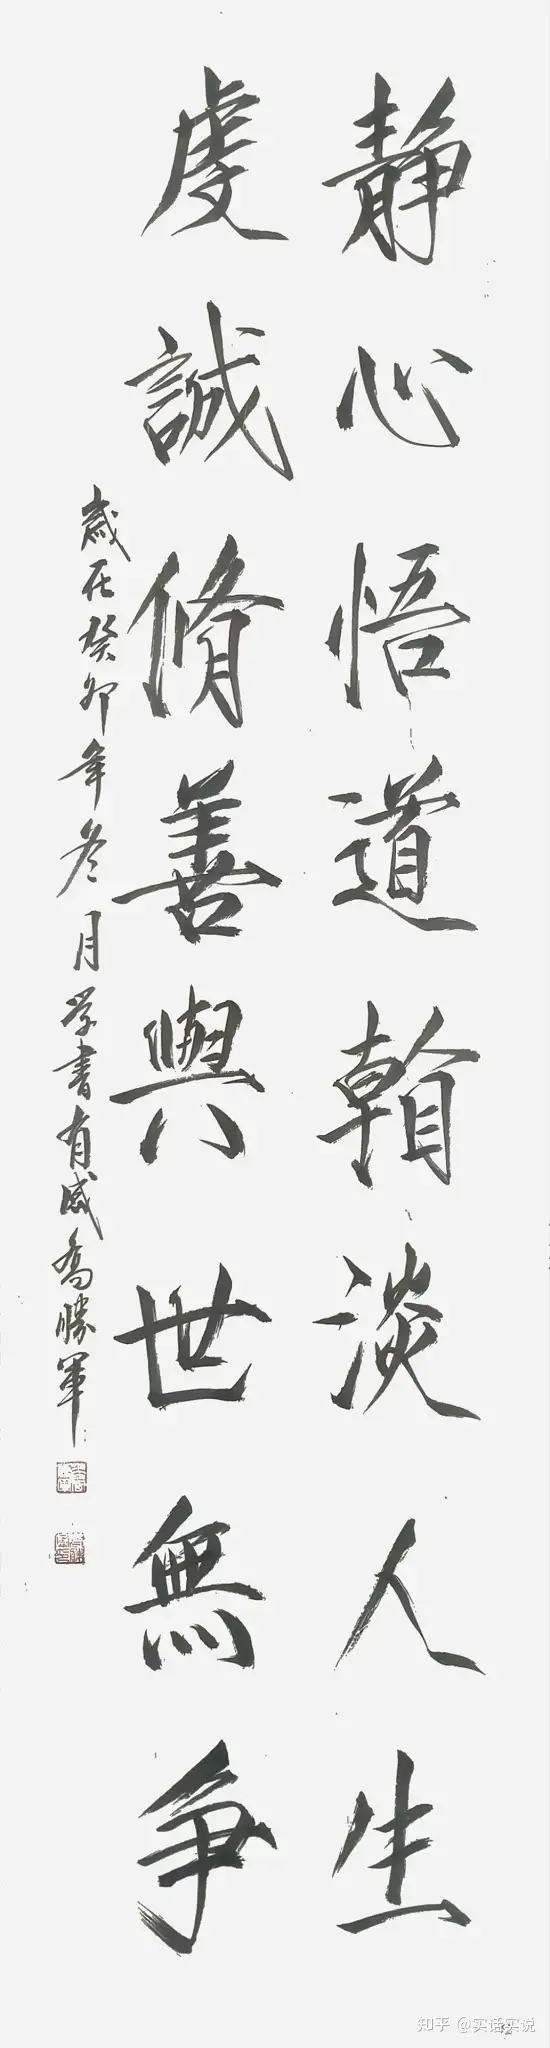 靜心悟道翰淡人生
虔誠脩善與世無爭
歲在癸卯年冬月学書有感喬勝軍
知乎 @实话实说